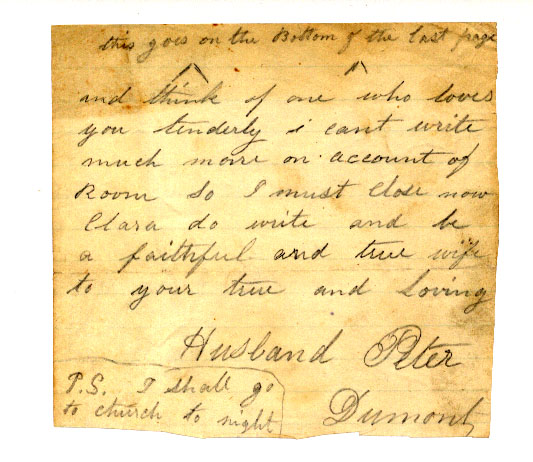 this goes on the Bottom of the last page
and think of one who loves
you tenderly i cant write
much more on account of
Room so I must close now
Clara do write and be
a faithful and true wife
to your true and Loving
Husband Peter
Dumont
P.S. I shall go
to church to night